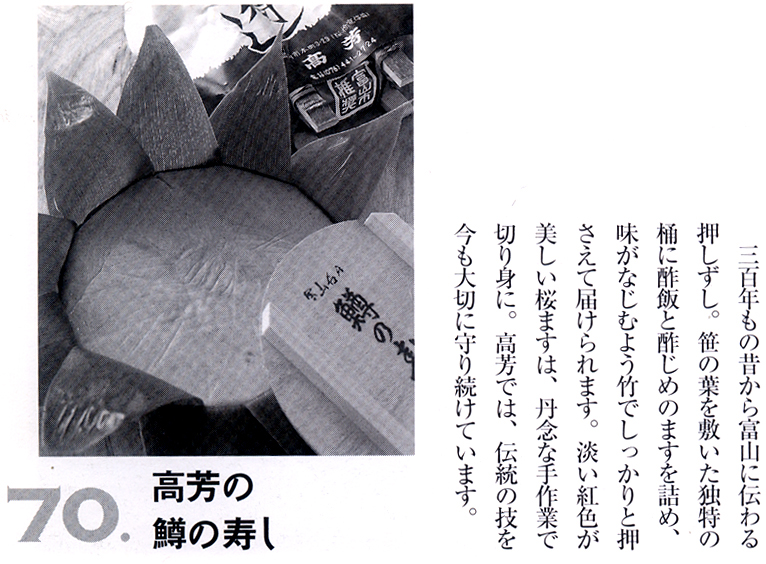 三百年もの昔から富山に伝わる
押しずし。笹の葉を敷いた独特の
桶に酢飯と酢じめのますを詰め、
味がなじむよう竹でしっかりと押
さえて届けられます。淡い紅色が
美しい桜ますは、丹念な手作業で
切り身に。高芳では、伝統の技を
今も大切に守り続けています。
高芳
富山市
鱒の寿
70.
高芳の
鱒の寿し